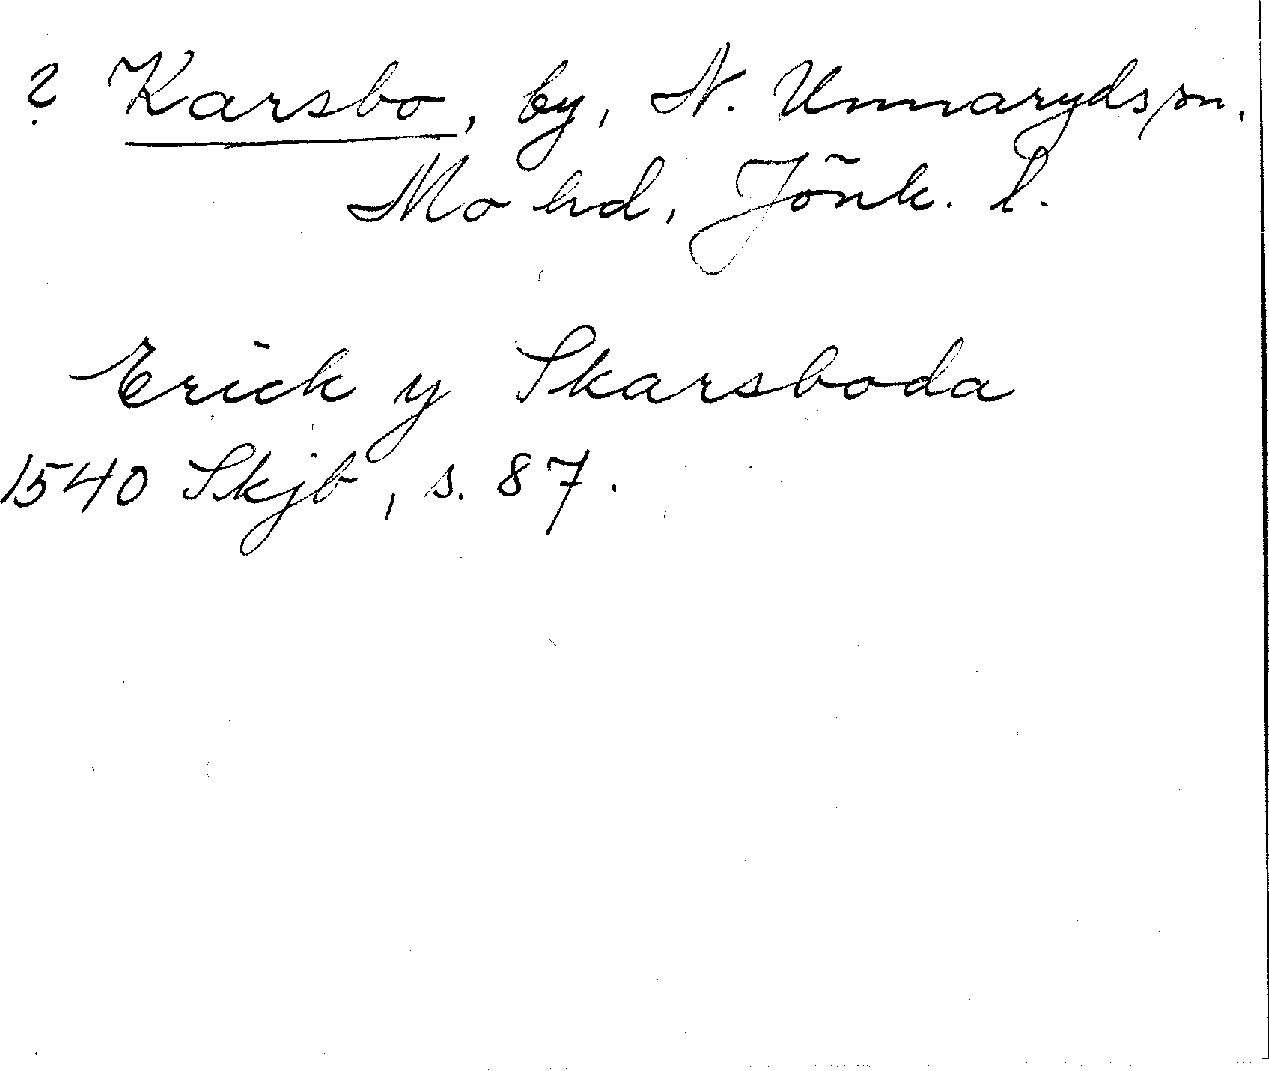 ? Karsbo, by, N. Unnaryds sn.
Mo hd, Jönk. l.
Erick y Skarsboda
1540 Skjb, s. 87.